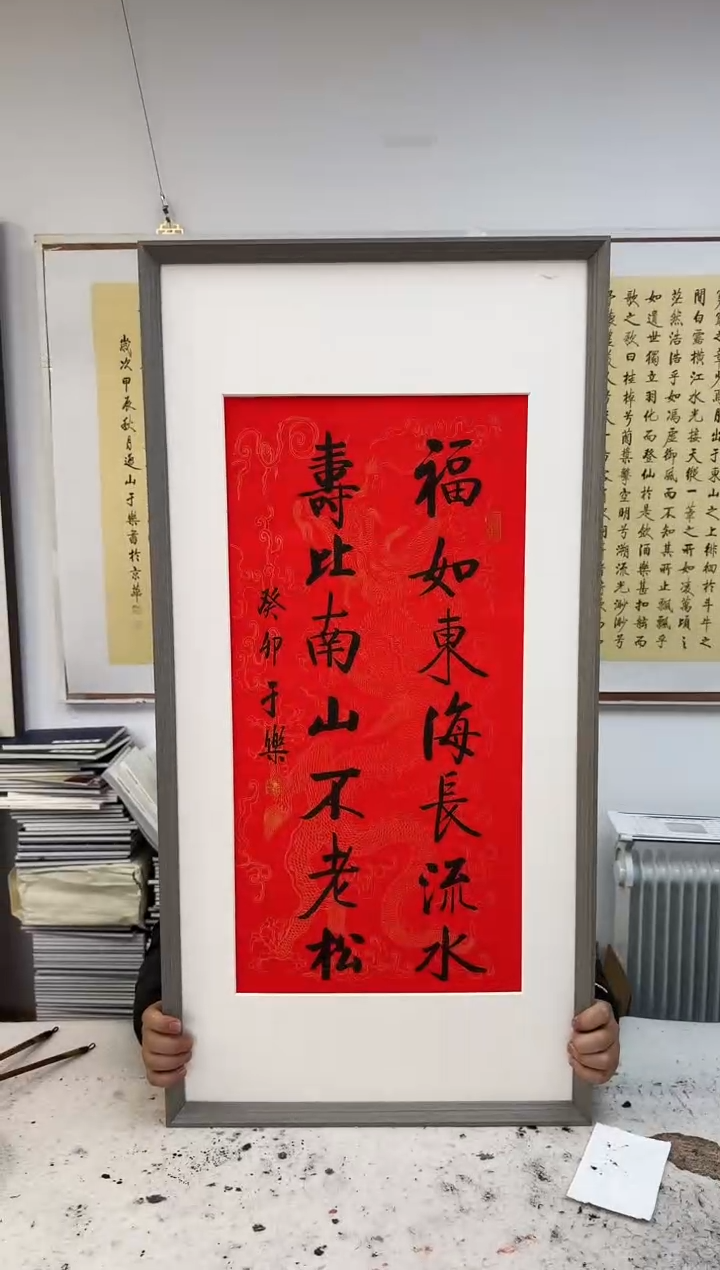 福如東海長流水
壽比南山不老松
癸卯于樂
閒白露橫江水光接天縱一葦之所如凌萬頃之
茫然浩浩乎如馮虛御風而不知其所止飄飄乎
如遺世獨立羽化而登仙於是飲酒樂甚扣舷而
歌之歌曰桂棹兮蘭槳擊空明兮溯流光渺渺兮
歲次甲辰秋月逸山于樂書於京華